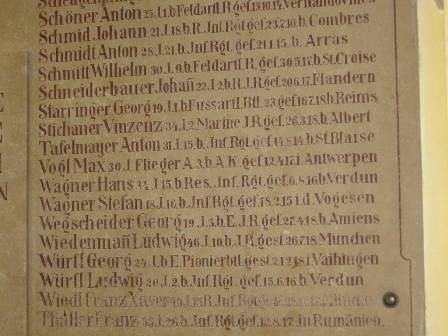 Schöner Anton 25.J.1.b.Feldartl.R.gef.13.10.14.
Schmid Johann 21.J.18.b.R.Inf.Rgt.gef.23.7.16.b. Combres
Schmidt Anton 28.J.2.b.Inf.Rgt.gef.21.1.15.b. Arras
Schmitt Wilhelm 30.J.9.b.Feldartl.R.gef.30.5.17.b.St.Croise
Schneiderbauer Johan 22.J.2.b.R.J.R.gef.20.6.17.Flandern
Starringer Georg 19.J.1.b.Fussartl.Btl.23.gef.16.7.18.b.Reims
Stichaner Vinzenz 34.J.2.Marine J.R.gef.26.3.18.b.Albert
Tafelmayer Anton 31.J.15.b.Inf.Rgt.gef.14.8.14.b.St.Blaise
Vogl Max 30.J.Flieger A.3.b.A.K.gef.12.4.17.i.Antwerpen
Wagner Hans b.Res.Inf.Rgt.gef.6.8.16.b.Verdun
Wagner Stefan 18.J.16.b.Inf.Rgt.gef.18.2.15.i.d.Vogesen
Wegscheider Georg 19.J.3.b.E.J.R.gef.27.4.18.b.Amiens
Wiedenman Ludwig 46.J.10.b.J.R.gest.26.7.18.München
Würfl Georg 24.J.b.E.Pionierbtl.gest.21.2.18.i.Vaihingen
Würfl Ludwig 20.J.2.b.Inf.Rgt.gef.15.6.16.b. Verdun
Wiedl Franz Xaver
Thaller Franz 33.J.26.b.Inf.Rgt.gef.12.8.17.in Rumänien.